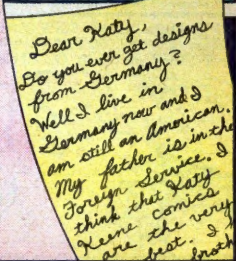 Dear Katy,
Do you ever get designs
from Germany?
Well I live in
Germany now and I
am still an American.
My father is in the
Foreign Service. I
think that Katy
Keene comics
are the very
best. I